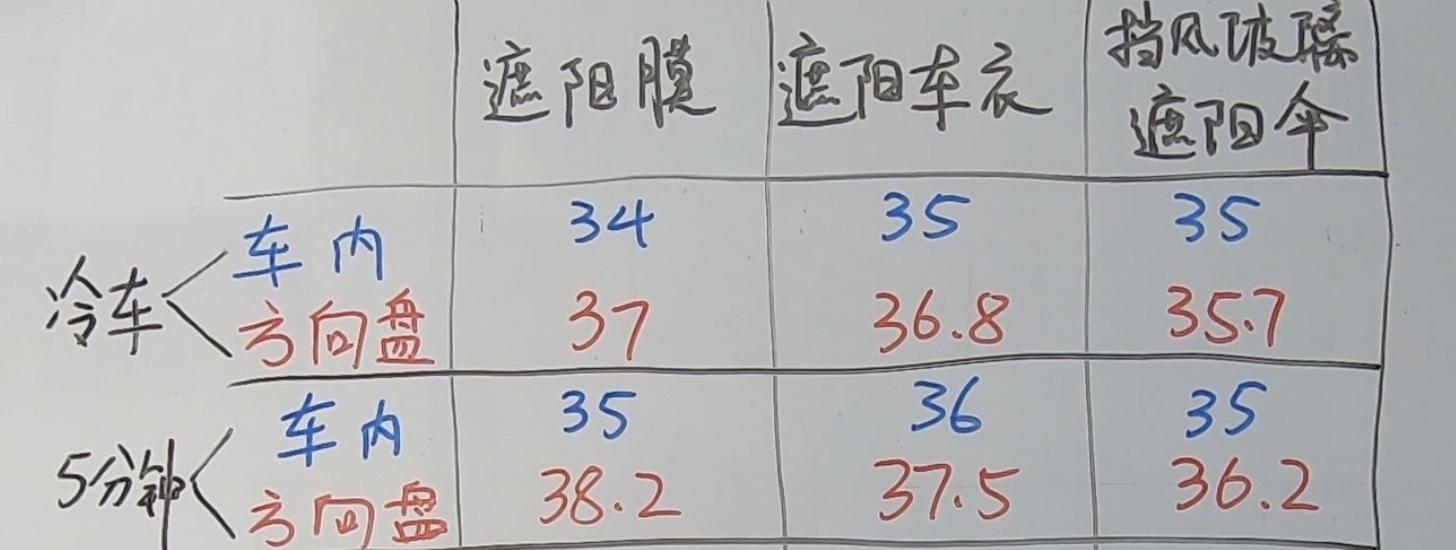 遮阳膜 遮阳车衣 挡风玻璃
遮阳伞
冷车 车内 34 35 35
方向盘 37 36.8 35.7
5分钟 车内 35 36 35
方向盘 38.2 37.5 36.2